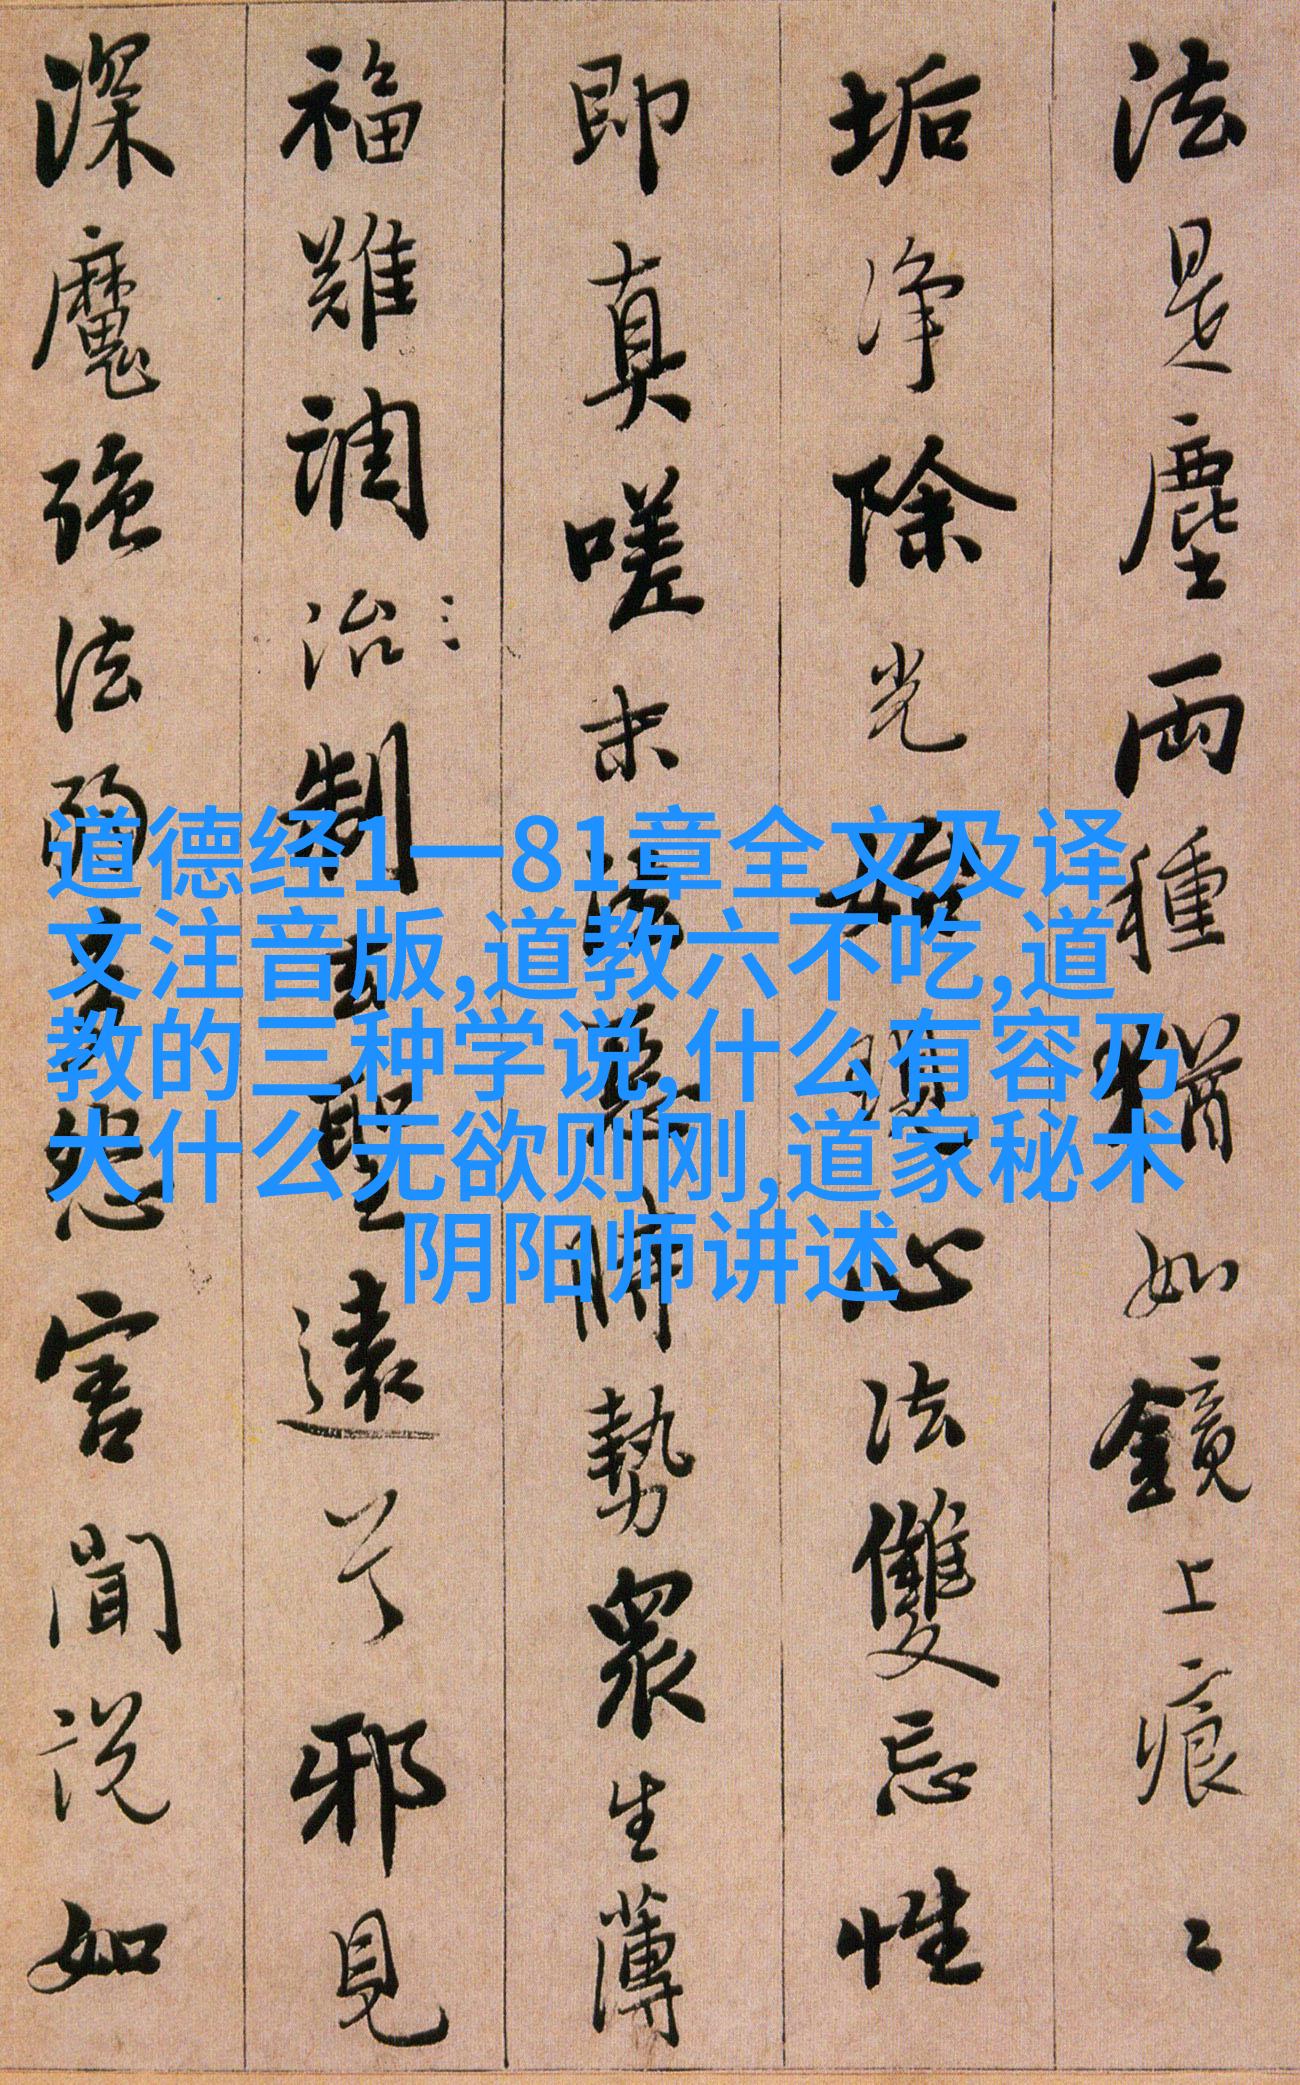 法是塵兩種猶如鏡上痕〻
垢净除光始現心法雙忘性
即真嗟末法惡時勢眾生薄
福難調治制去聖遠兮邪見
深魔強法弱多怨害聞說如
道德经1一81章全文及译
文注音版,道教六不吃,道
教的三种学说,什么有容乃
大什么无欲则刚,道家秘术
阴阳师讲述